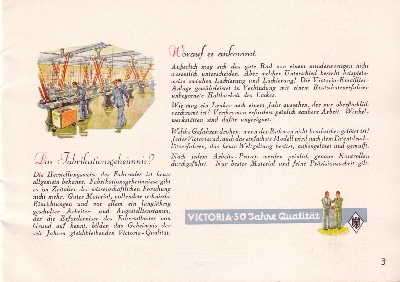 Worauf es ankommt.
Äußerlich mag sich das gute Rad von einem minderwertigen nicht
wesentlich unterscheiden. Aber welcher Unterschied besteht beispiels-
weise zwischen Lackierung und Lackierung! Die Victoria-Emaillier-
Anlage gewährleistet in Verbindung mit einem Rostschutzverfahren
unbegrenzte Haltbarkeit des Lackes.
Wie mag ein Lenker nach einem Jahr aussehen, der nur oberflächlich
verchromt ist! Verchromen erfordert peinlich saubere Arbeit. Winkel-
werkstätten sind dafür ungeeignet.
Welche Gefahren drohen, wenn der Rahmen nicht bruchsicher gelötet ist!
Jedes Victoria-Rad, auch das einfachste Modell wird nach dem
das heute Weltgeltung besitzt, außengelötet und gemufft.
Nach jedem Arbeits-Prozeß werden peinlich genaue Kontrollen
durchgeführt. Nur bester Material und feine Präzisionsarbeit gilt.
Das Fabrikationsgeheimnis?
Die Herstellungsweise des Fahrrades ist heute
allgemein bekannt. Fabrikationsgeheimnisse gibt
es im Zeitalter der wissenschaftlichen Forschung
nicht mehr. Gutes Material, vollendete technische
Einrichtungen und vor allem ein langjährig
geschulter Arbeiter- und Angestelltenstamm,
der die Erfordernisse des Fahrradbaues von
Grund auf kennt, bilden das Geheimnis der
seit Jahren gleichbleibenden Victoria-Qualität.
VICTORIA-50 Jahre Qualität
3